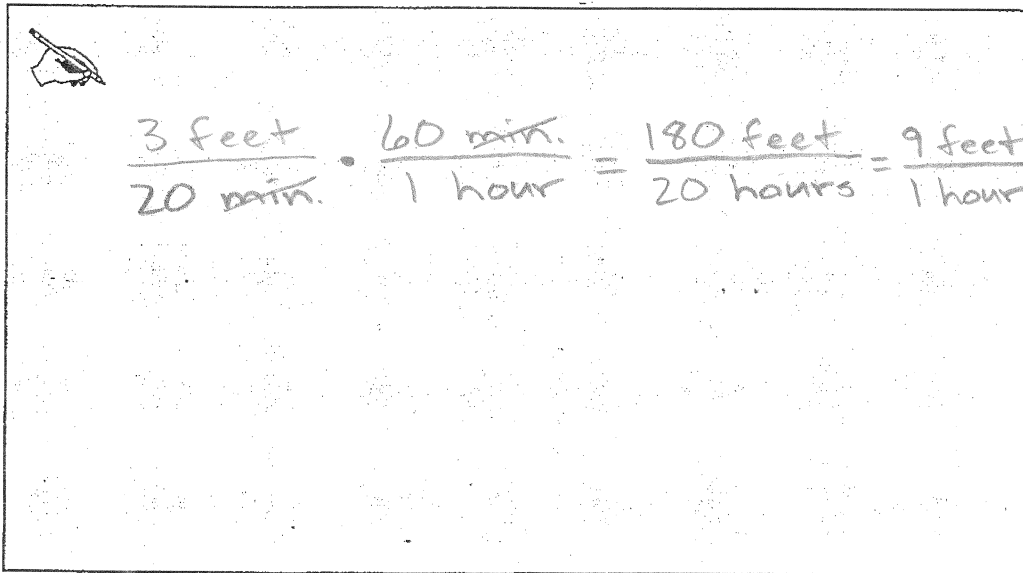 3 feet / 20 min. • 60 min. / 1 hour = 180 feet / 20 hours = 9 feet / 1 hour